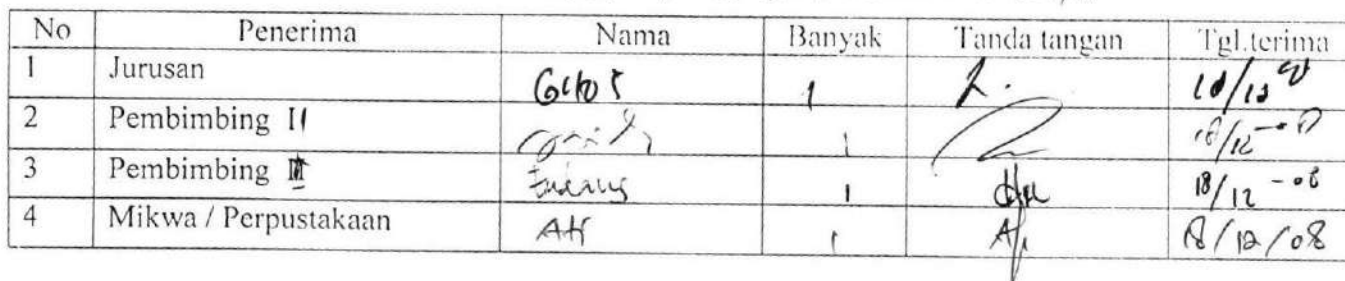 No Penerima Nama Banyak Tanda tangan Tgl.terima
1 Jurusan 1
2 Pembimbing II 1
3 Pembimbing III Endang 1 18/12 - 08
4 Mikwa / Perpustakaan Ati 1 18/12/08